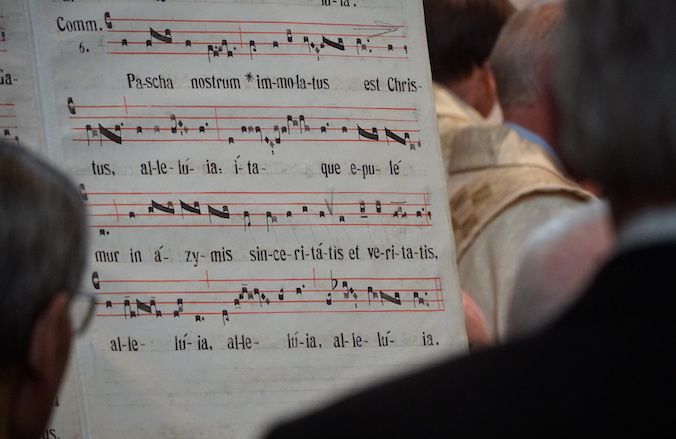 Comm.
6.
Pa-scha nostrum * im-mo-la-tus est Chris-
tus, al-le-lú-ia: í-ta- que e-pu-lé
mur in á- zy-mis sin-ce-ri-tá-tis et ve-ri-ta-tis,
al-le- lú-ia, al-le- lú-ia, al-le-lú- ia.